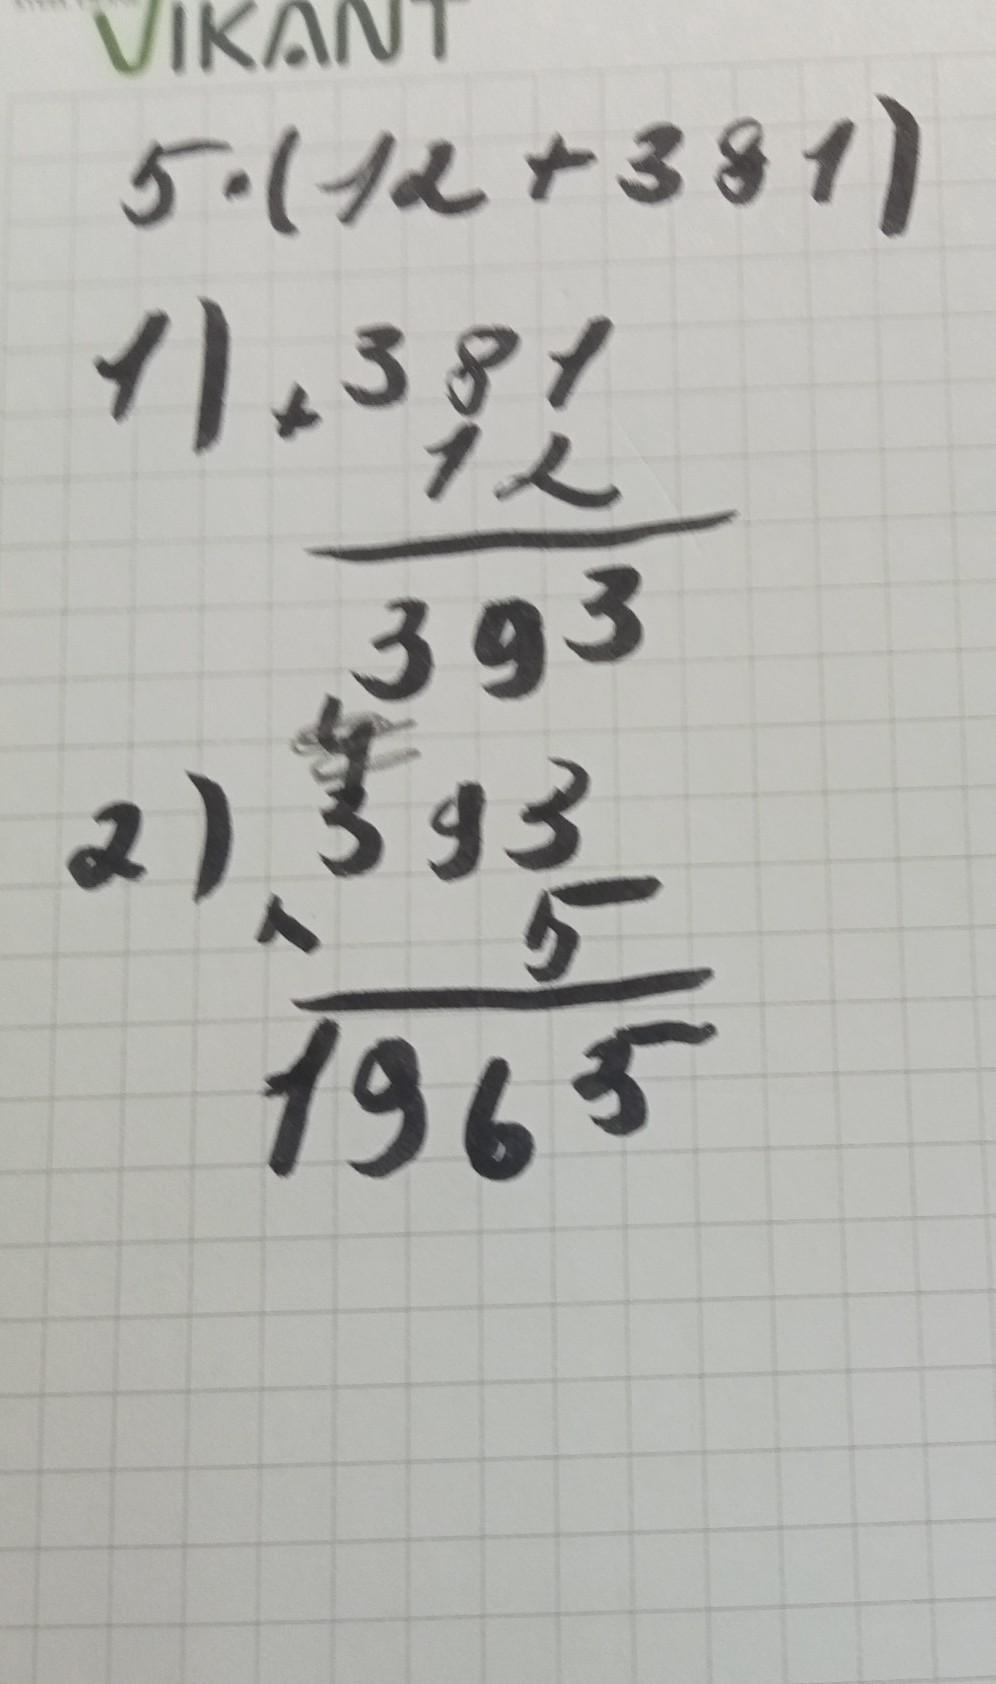 VIKANT
5·(12+381)
1) + 381
12
393
4
2) 393
× 5
1965